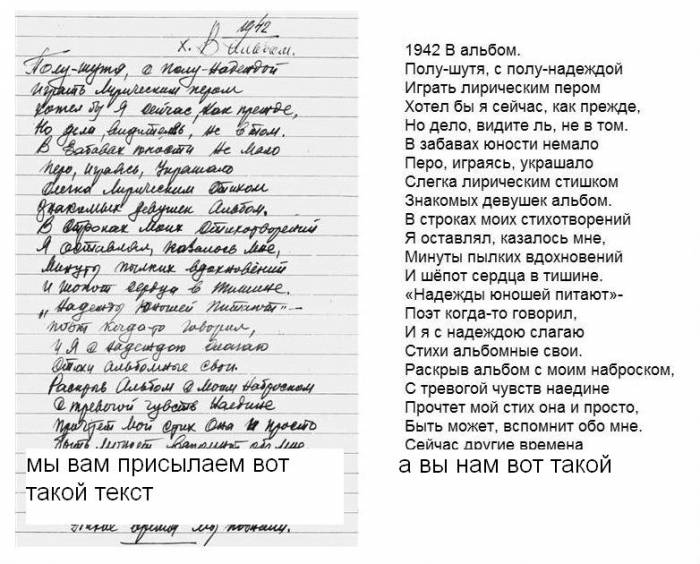 1942
х. В Альбом.
Полу-шутя, с полу-надеждой
Играть Лирическим пером
Хотел бы Я сейчас, как прежде,
Но дела, видите ль, не в том.
В Забавах юности не мало
Перо, играясь, Украшало
Слегка Лирическим Стихом
Знакомых девушек Альбом.
В Строках Моих Стихотворений
Я оставлял, казалось мне,
Минуты пылких вдохновений
И шопот сердца в тишине.
„Надежды Юношей Питают"—
поэт когда-то говорил,
И Я с надеждою слагаю
Стихи Альбомные свои.
Раскрыв Альбом с моим Наброском
С тревогой чувств Наедине
Прочтет мой стих Она и просто
Быть может вспомнит обо мне
мы вам присылаем вот
такой текст
1942 В альбом.
Полу-шутя, с полу-надеждой
Играть лирическим пером
Хотел бы я сейчас, как прежде,
Но дело, видите ль, не в том.
В забавах юности немало
Перо, играясь, украшало
Слегка лирическим стишком
Знакомых девушек альбом.
В строках моих стихотворений
Я оставлял, казалось мне,
Минуты пылких вдохновений
И шёпот сердца в тишине.
«Надежды юношей питают»-
Поэт когда-то говорил,
И я с надеждою слагаю
Стихи альбомные свои.
Раскрыв альбом с моим наброском,
С тревогой чувств наедине
Прочтет мой стих она и просто,
Быть может, вспомнит обо мне.
Сейчас другие времена
а вы нам вот такой